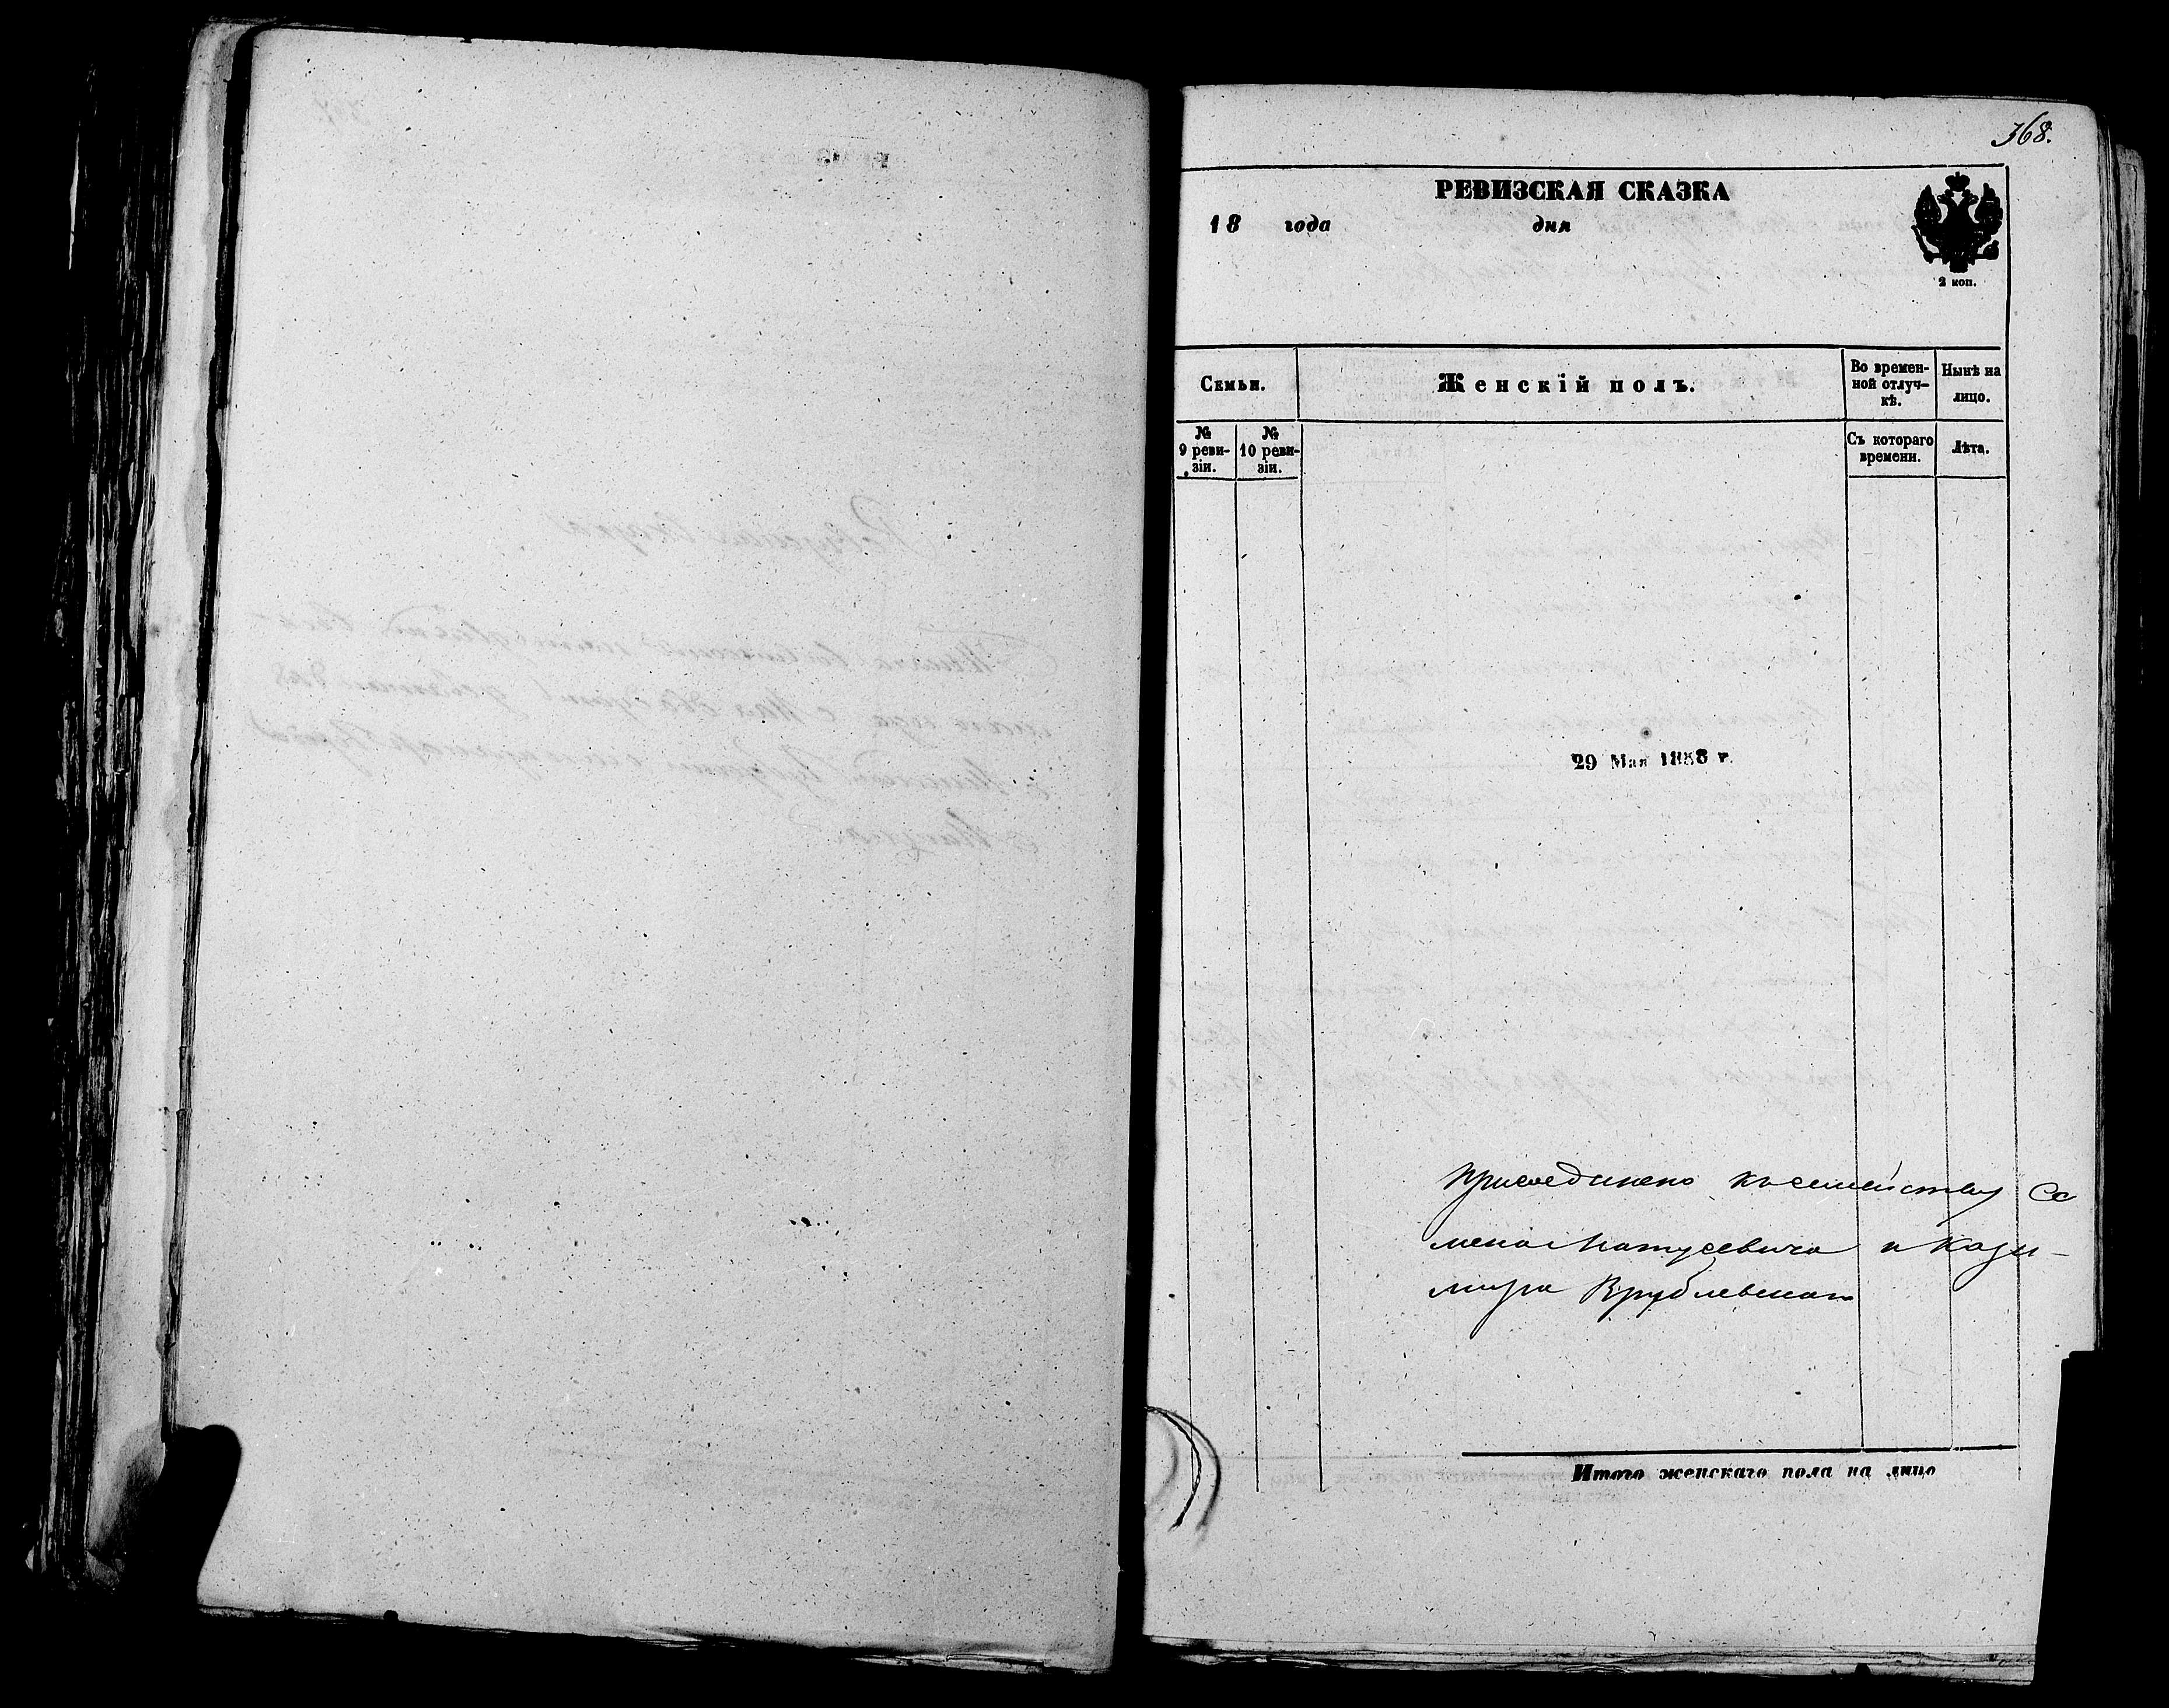 368.
РЕВИЗСКАЯ СКАЗКА
18 года дня
2 коп.
Семьи.
Женскій полъ.
Во времен-
ной отлуч-
кѣ.
Нынѣ на
лицо.
№
9 реви-
зіи.
№
10 реви-
зіи.
Съ котораго
времени.
Лѣта.
29 Мая 1858 г.
Присоединено къ семейству Се
мена Матусевича и Кази-
мира Врублевскаго
Итого женскаго пола на лицо